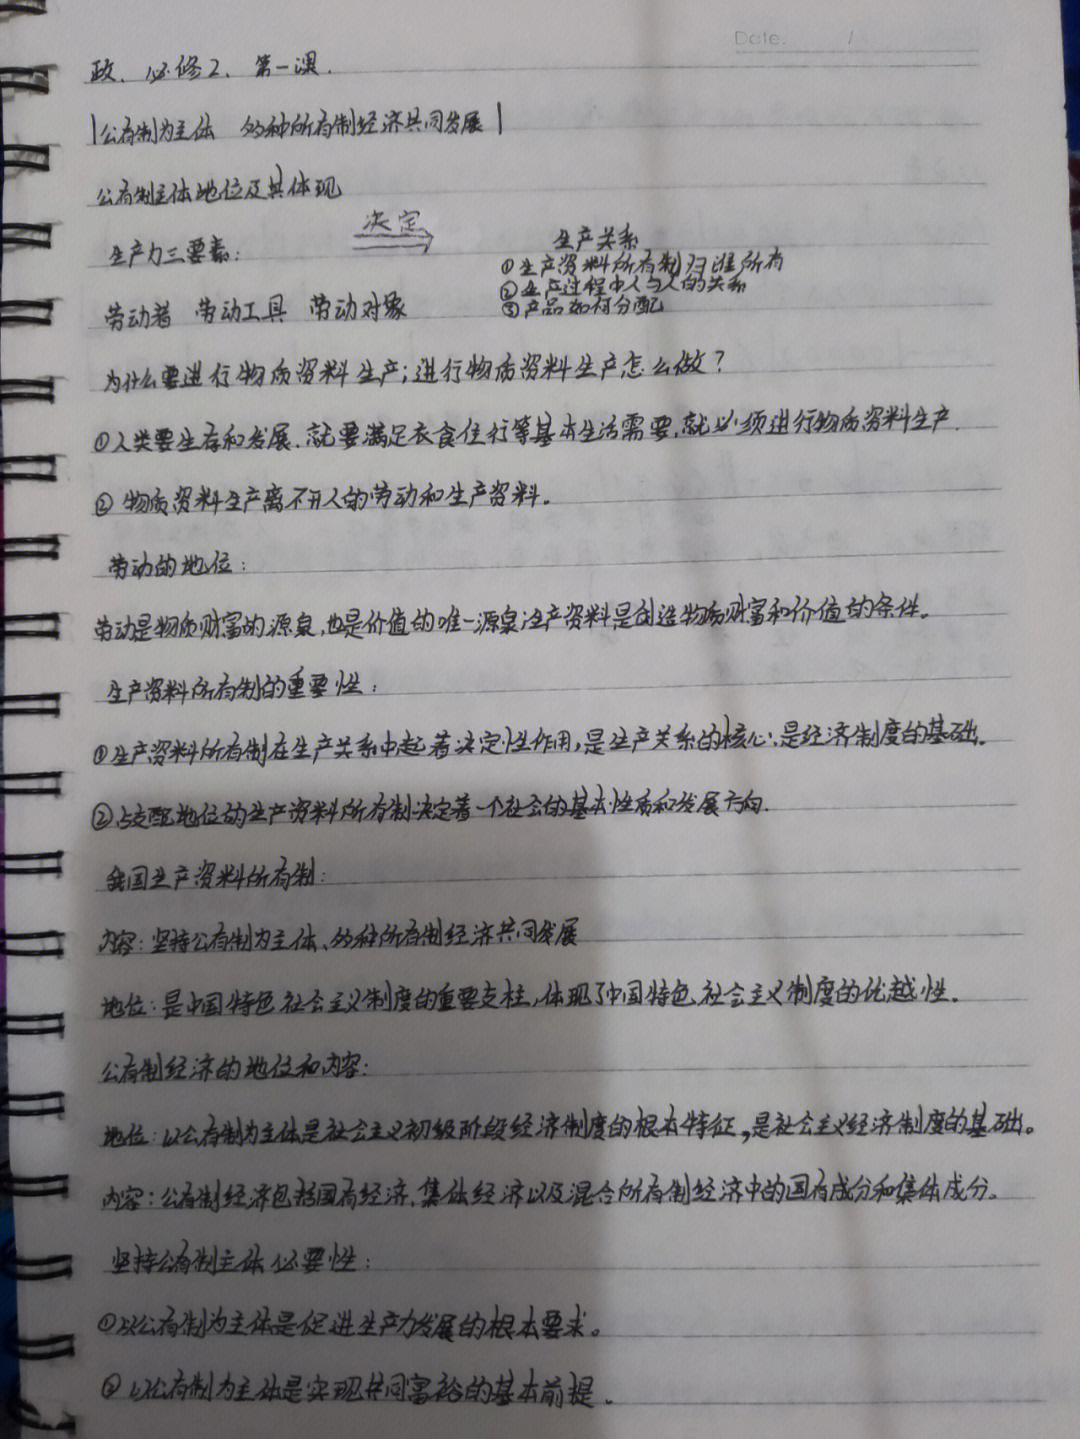 Date.    /
政、必修2、第一课.
公有制为主体 多种所有制经济共同发展
公有制主体地位及其体现
生产力三要素:
决定
生产关系
①生产资料所有制归谁所有
②生产过程中人与人的关系
③产品如何分配
劳动者 劳动工具 劳动对象
为什么要进行物质资料生产;进行物质资料生产怎么做?
①人类要生存和发展.就要满足衣食住行等基本生活需要,就必须进行物质资料生产.
②物质资料生产离不开人的劳动和生产资料。
劳动的地位:
劳动是物质财富的源泉,也是价值的唯一源泉生产资料是创造物质财富和价值的条件。
生产资料所有制的重要性:
①生产资料所有制在生产关系中起着决定性作用,是生产关系的核心,是经济制度的基础。
②占支配地位的生产资料所有制决定着一个社会的基本性质和发展方向.
我国生产资料所有制:
内容:坚持公有制为主体、多种所有制经济共同发展
地位:是中国特色社会主义制度的重要支柱,体现了中国特色社会主义制度的优越性。
公有制经济的地位和内容:
地位:以公有制为主体是社会主义初级阶段经济制度的根本特征,是社会主义经济制度的基础。
内容:公有制经济包括国有经济,集体经济以及混合所有制经济中的国有成分和集体成分。
坚持公有制主体必要性:
①以公有制为主体是促进生产力发展的根本要求。
②以公有制为主体是实现共同富裕的基本前提。